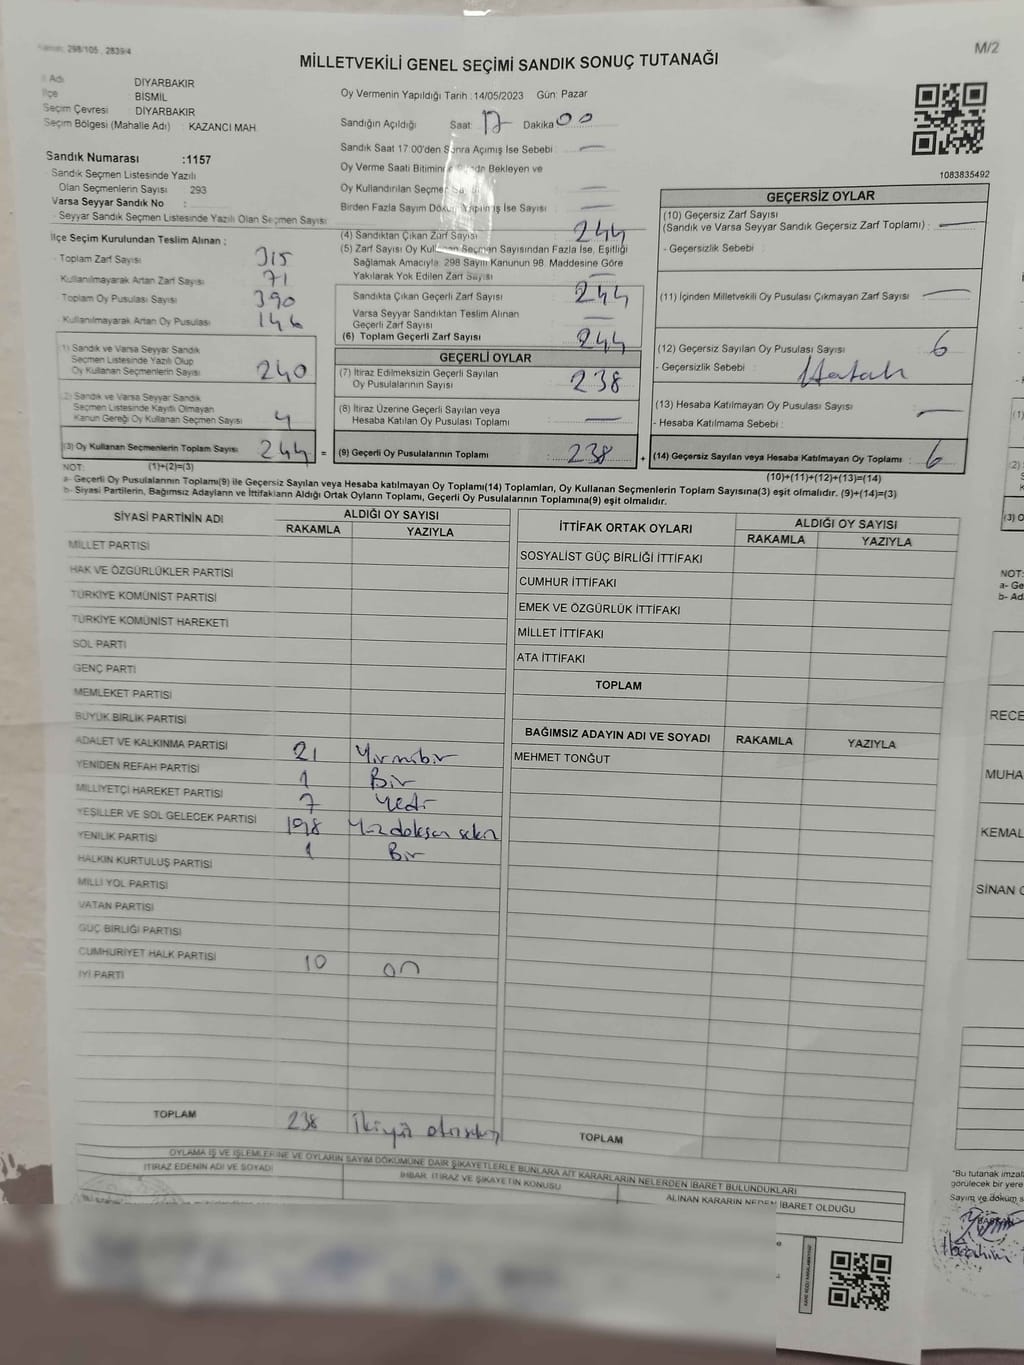 298/105 , 2839/4
M/2
MİLLETVEKİLİ GENEL SEÇİMİ SANDIK SONUÇ TUTANAĞI
İl Adı DİYARBAKIR
İlçe BİSMİL
Seçim Çevresi : DİYARBAKIR
Seçim Bölgesi (Mahalle Adı) : KAZANCI MAH
Sandık Numarası :1157
Sandık Seçmen Listesinde Yazılı
Olan Seçmenlerin Sayısı : 293
Varsa Seyyar Sandık No :
- Seyyar Sandık Seçmen Listesinde Yazılı Olan Seçmen Sayısı
İlçe Seçim Kurulundan Teslim Alınan :
Toplam Zarf Sayısı 315
Kullanılmayarak Artan Zarf Sayısı 71
Toplam Oy Pusulası Sayısı 390
Kullanılmayarak Artan Oy Pusulası 146
1) Sandık ve Varsa Seyyar Sandık
Seçmen Listesinde Yazılı Olup
Oy Kullanan Seçmenlerin Sayısı 240
2) Sandık ve Varsa Seyyar Sandık
Seçmen Listesinde Kayıtlı Olmayan
Kanun Gereği Oy Kullanan Seçmen Sayısı 4
(3) Oy Kullanan Seçmenlerin Toplam Sayısı 244 =
Oy Vermenin Yapıldığı Tarih :14/05/2023 Gün: Pazar
Sandığın Açıldığı Saat: 17 Dakika 00
Sandık Saat 17:00'den Sonra Açımış İse Sebebi : —
Oy Verme Saati Bitiminde Bekleyen ve
Oy Kullandırılan Seçmen —
Birden Fazla Sayım Döküm Yapılmış İse Sayısı —
(4) Sandıktan Çıkan Zarf Sayısı 244
(5) Zarf Sayısı Oy Kullanan Seçmen Sayısından Fazla İse, Eşitliği
Sağlamak Amacıyla, 298 Sayılı Kanunun 98. Maddesine Göre
Yakılarak Yok Edilen Zarf Sayısı —
Sandıkta Çıkan Geçerli Zarf Sayısı 244
Varsa Seyyar Sandıktan Teslim Alınan
Geçerli Zarf Sayısı —
(6) Toplam Geçerli Zarf Sayısı 244
GEÇERLİ OYLAR
(7) İtiraz Edilmeksizin Geçerli Sayılan
Oy Pusulalarının Sayısı 238
(8) İtiraz Üzerine Geçerli Sayılan veya
Hesaba Katılan Oy Pusulası Toplamı —
(9) Geçerli Oy Pusulalarının Toplamı : 238 +
1083835492
GEÇERSİZ OYLAR
(10) Geçersiz Zarf Sayısı
(Sandık ve Varsa Seyyar Sandık Geçersiz Zarf Toplamı) : —
- Geçersizlik Sebebi :
(11) İçinden Milletvekili Oy Pusulası Çıkmayan Zarf Sayısı —
(12) Geçersiz Sayılan Oy Pusulası Sayısı 6
- Geçersizlik Sebebi : Hatalı
(13) Hesaba Katılmayan Oy Pusulası Sayısı —
- Hesaba Katılmama Sebebi :
(14) Geçersiz Sayılan veya Hesaba Katılmayan Oy Toplamı : 6
NOT: (1)+(2)=(3) (10)+(11)+(12)+(13)=(14)
a- Geçerli Oy Pusulalarının Toplamı(9) ile Geçersiz Sayılan veya Hesaba Katılmayan Oy Toplamı(14) Toplamları, Oy Kullanan Seçmenlerin Toplam Sayısına(3) eşit olmalıdır. (9)+(14)=(3)
b- Siyasi Partilerin, Bağımsız Adayların ve İttifakların Aldığı Ortak Oyların Toplamı, Geçerli Oy Pusulalarının Toplamına(9) eşit olmalıdır.
SİYASİ PARTİNİN ADI ALDIĞI OY SAYISI
RAKAMLA YAZIYLA
MİLLET PARTİSİ
HAK VE ÖZGÜRLÜKLER PARTİSİ
TÜRKİYE KOMÜNİST PARTİSİ
TÜRKİYE KOMÜNİST HAREKETİ
SOL PARTİ
GENÇ PARTİ
MEMLEKET PARTİSİ
BÜYÜK BİRLİK PARTİSİ
ADALET VE KALKINMA PARTİSİ 21 Yirmibir
YENİDEN REFAH PARTİSİ 1 Bir
MİLLİYETÇİ HAREKET PARTİSİ 7 Yedi
YEŞİLLER VE SOL GELECEK PARTİSİ 198 Yüz doksan sekiz
YENİLİK PARTİSİ 1 Bir
HALKIN KURTULUŞ PARTİSİ
MİLLİ YOL PARTİSİ
VATAN PARTİSİ
GÜÇ BİRLİĞİ PARTİSİ
CUMHURİYET HALK PARTİSİ 10 on
İYİ PARTİ
TOPLAM 238 İkiyüz otuzsekiz
İTTİFAK ORTAK OYLARI ALDIĞI OY SAYISI
RAKAMLA YAZIYLA
SOSYALİST GÜÇ BİRLİĞİ İTTİFAKI
CUMHUR İTTİFAKI
EMEK VE ÖZGÜRLÜK İTTİFAKI
MİLLET İTTİFAKI
ATA İTTİFAKI
TOPLAM
BAĞIMSIZ ADAYIN ADI VE SOYADI RAKAMLA YAZIYLA
MEHMET TONĞUT
TOPLAM
OYLAMA İŞ VE İŞLEMLERİNE VE OYLARIN SAYIM DÖKÜMÜNE DAİR ŞİKAYETLERLE BUNLARA AİT KARARLARIN NELERDEN İBARET BULUNDUKLARI
İTİRAZ EDENİN ADI VE SOYADI
İHBAR, İTİRAZ VE ŞİKAYETİN KONUSU
ALINAN KARARIN NEDEN İBARET OLDUĞU
(1)
(2)
(3) O
NOT:
a- Ge
b- Ad
RECE
MUHA
KEMAL
SİNAN O
"Bu tutanak imzal
görülecek bir yere
Sayım ve döküm s